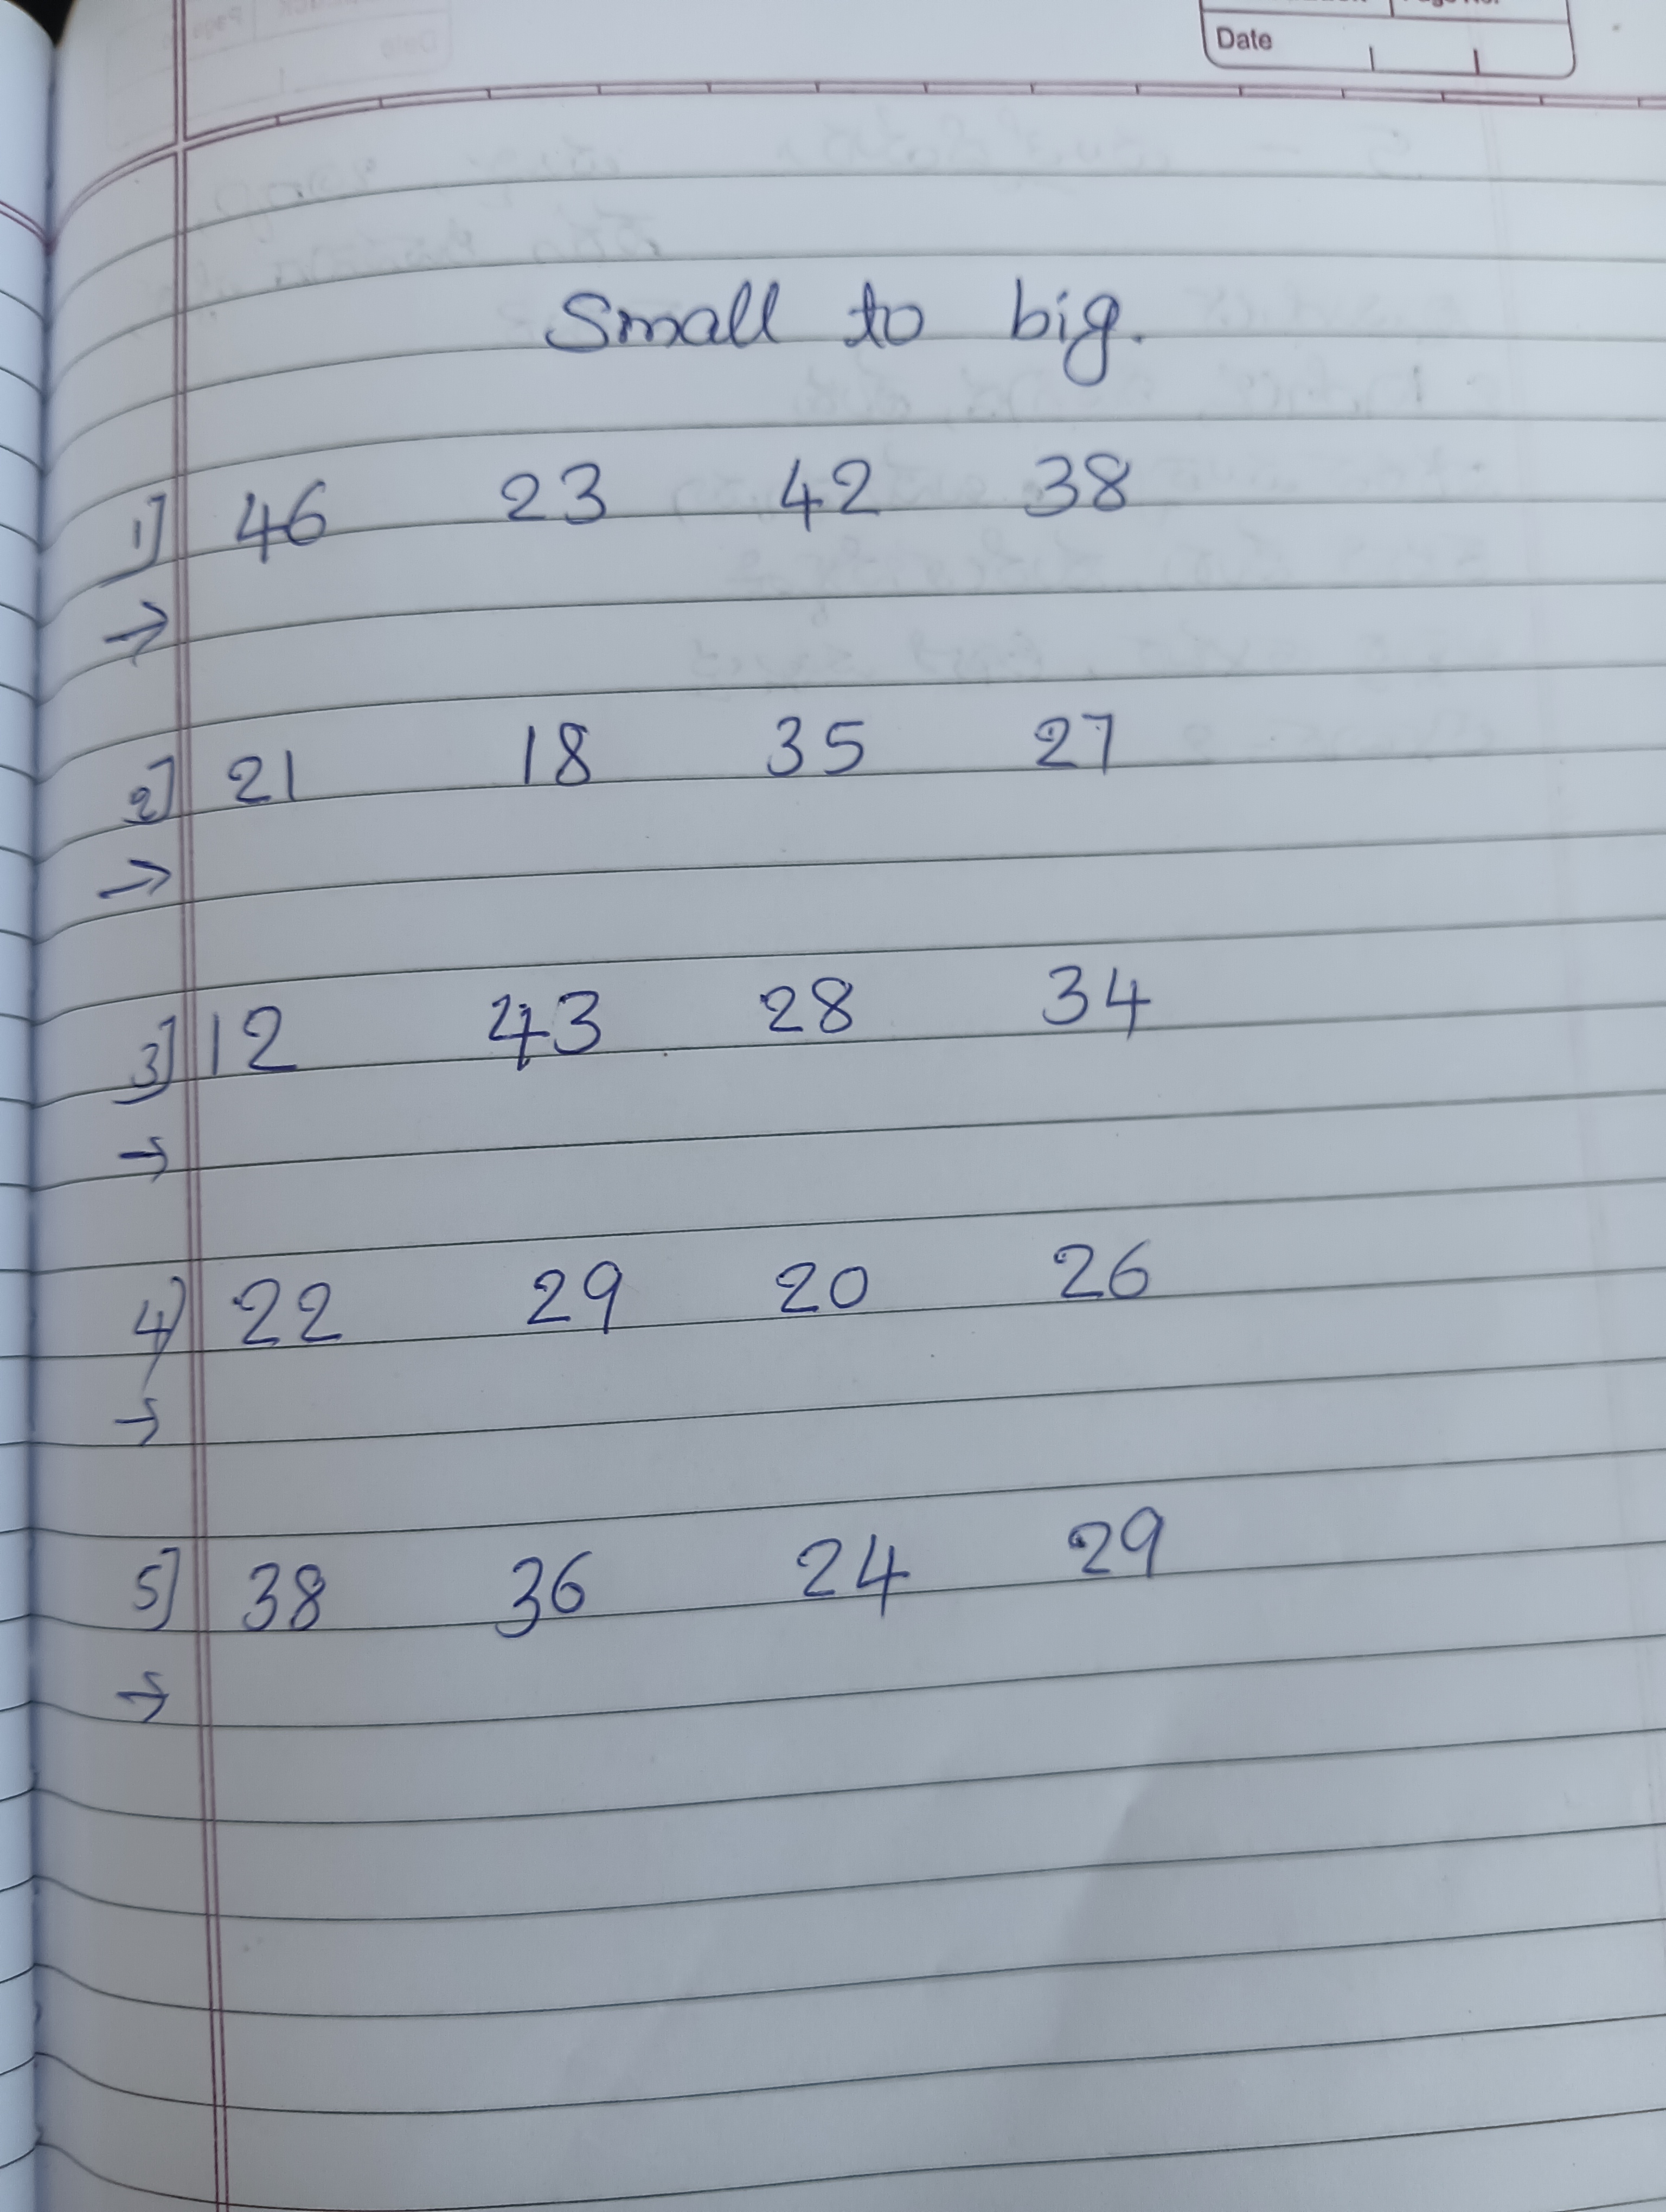 Date
Small to big.
1] 46 23 42 38
→
2] 21 18 35 27
→
3] 12 43 28 34
→
4) 22 29 20 26
→
5] 38 36 24 29
→